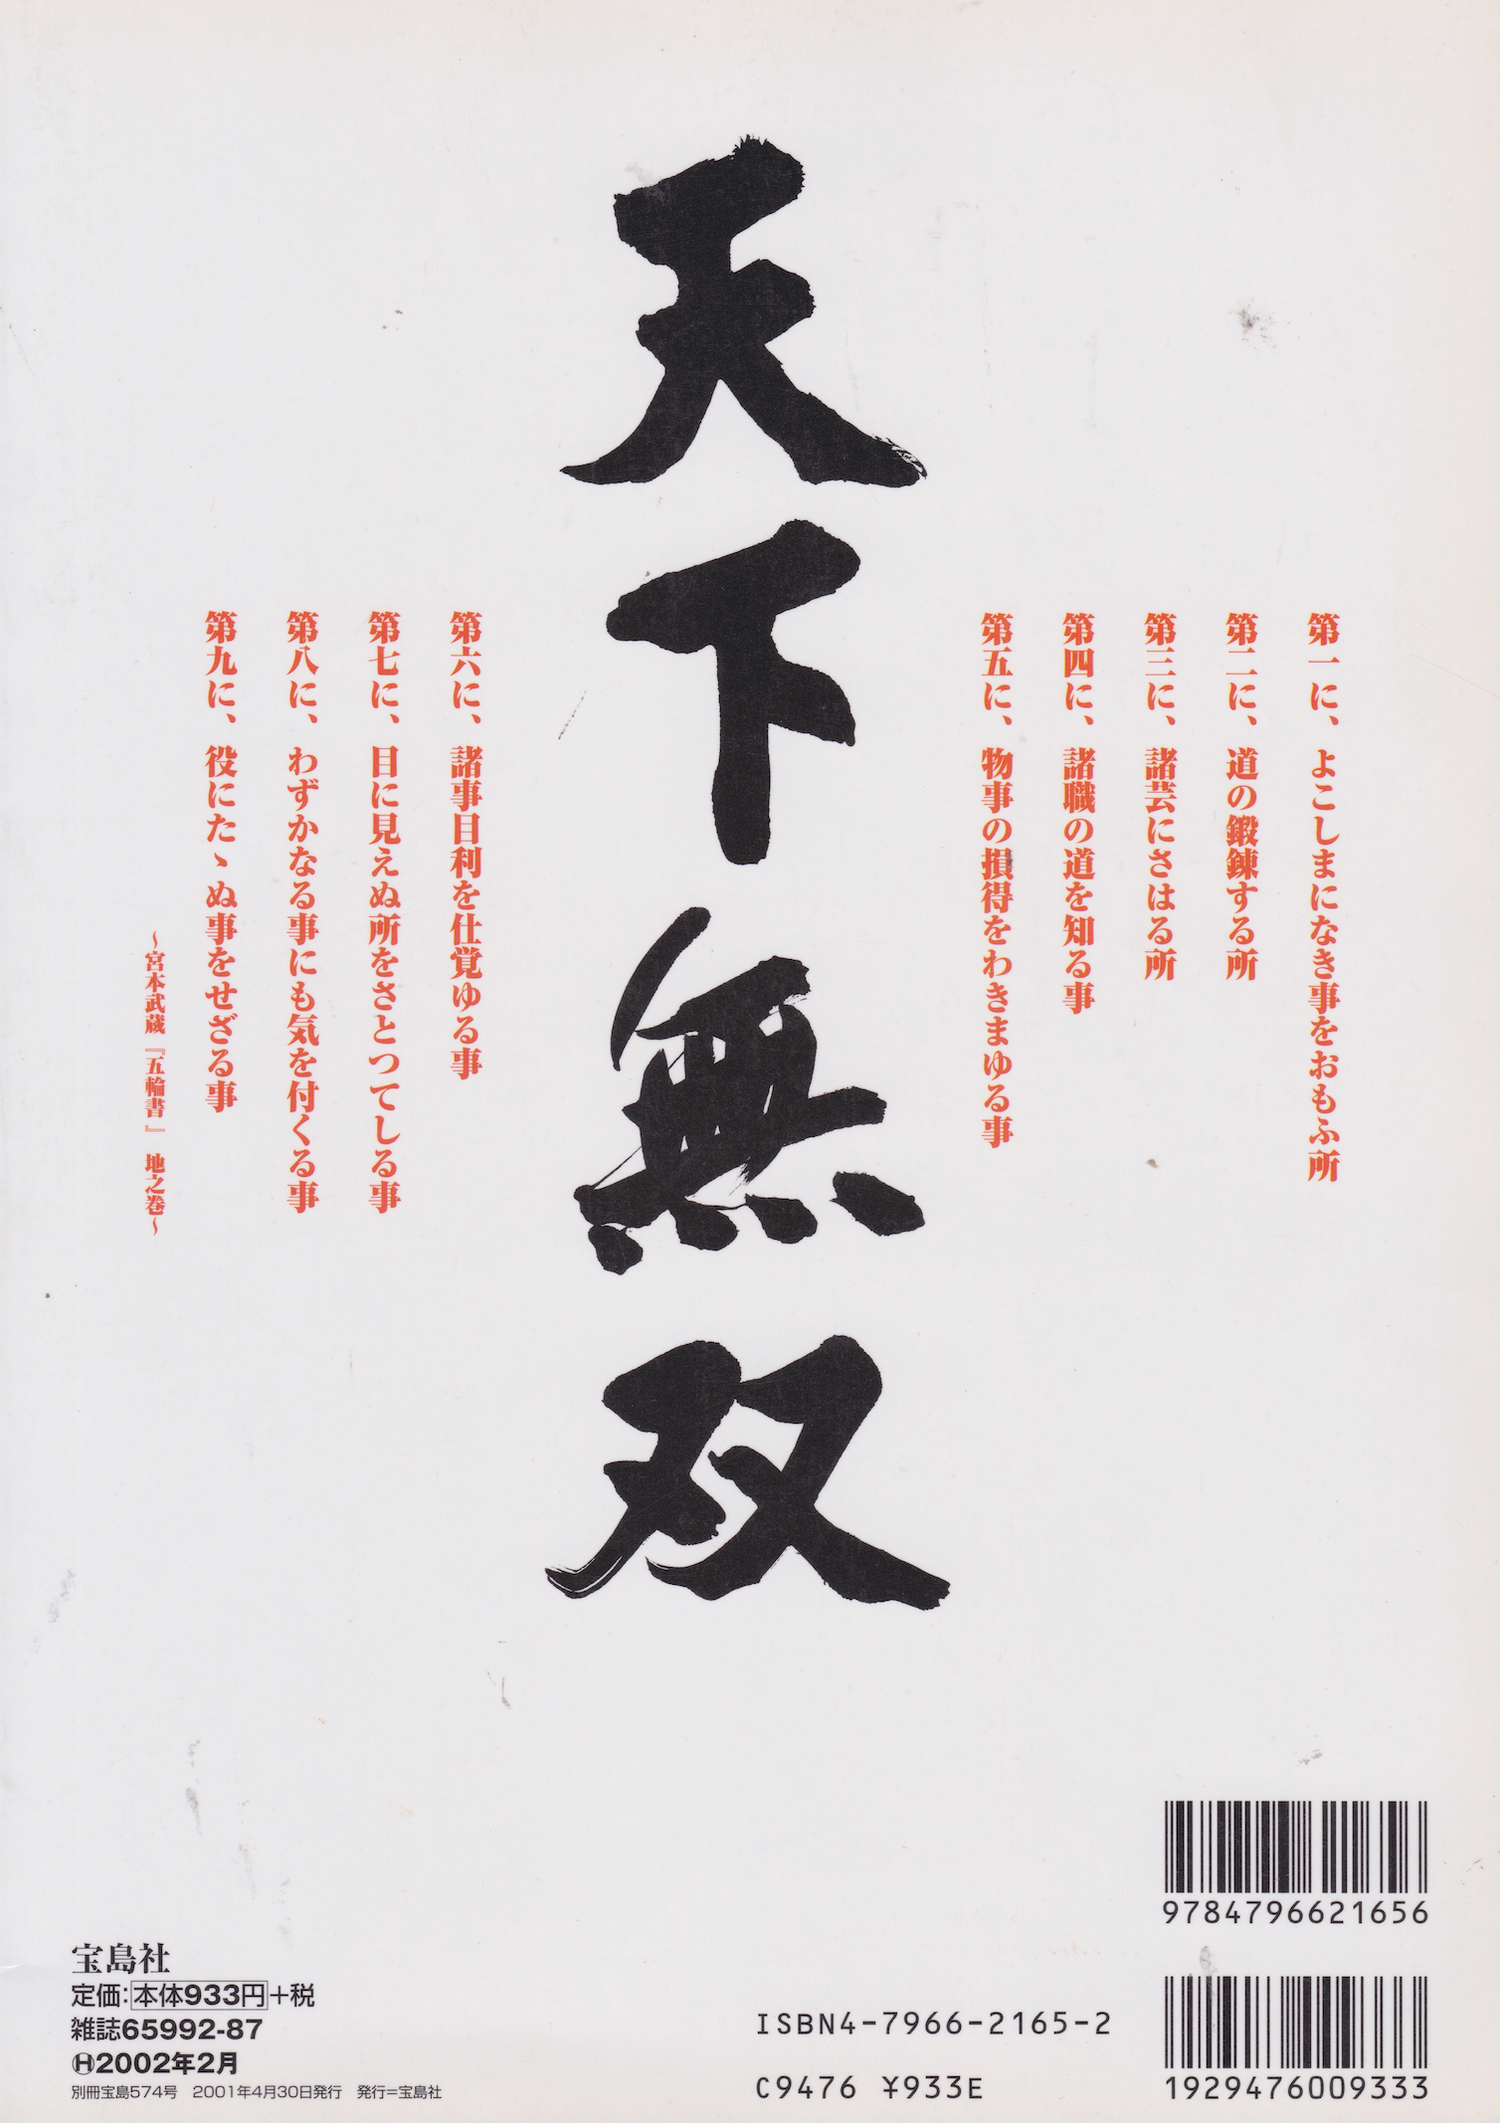 第一に、よこしまになき事をおもふ所
第二に、道の鍛錬する所
第三に、諸芸にさはる所
第四に、諸職の道を知る事
第五に、物事の損得をわきまゆる事
天下無双
第六に、諸事目利を仕覚ゆる事
第七に、目に見えぬ所をさとつてしる事
第八に、わずかなる事にも気を付くる事
第九に、役にたゝぬ事をせざる事
~宮本武蔵『五輪書』 地之巻~
9784796621656
宝島社
定価:本体933円+税
雑誌65992-87
Ⓗ2002年2月
別冊宝島574号 2001年4月30日発行 発行=宝島社
ISBN4-7966-2165-2
C9476 ¥933E
1929476009333